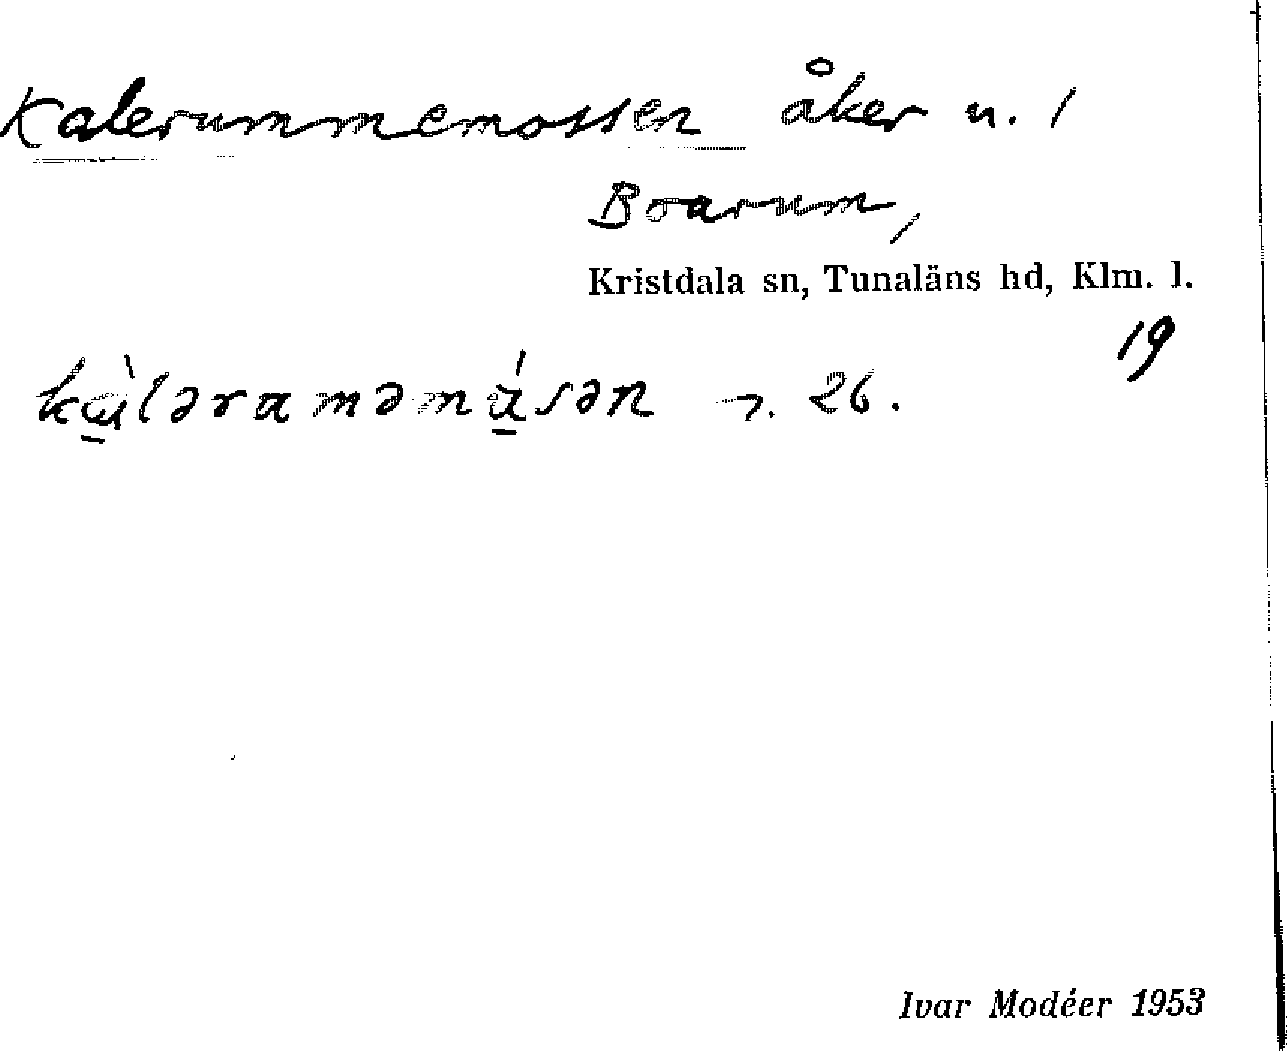 Kalerummemossen åker n. 1
Boarum,
Kristdala sn, Tunaläns hd, Klm. l.
19
kɑ̱̀lərɑməmɑ̱́sən 26.
Ivar Modéer 1953